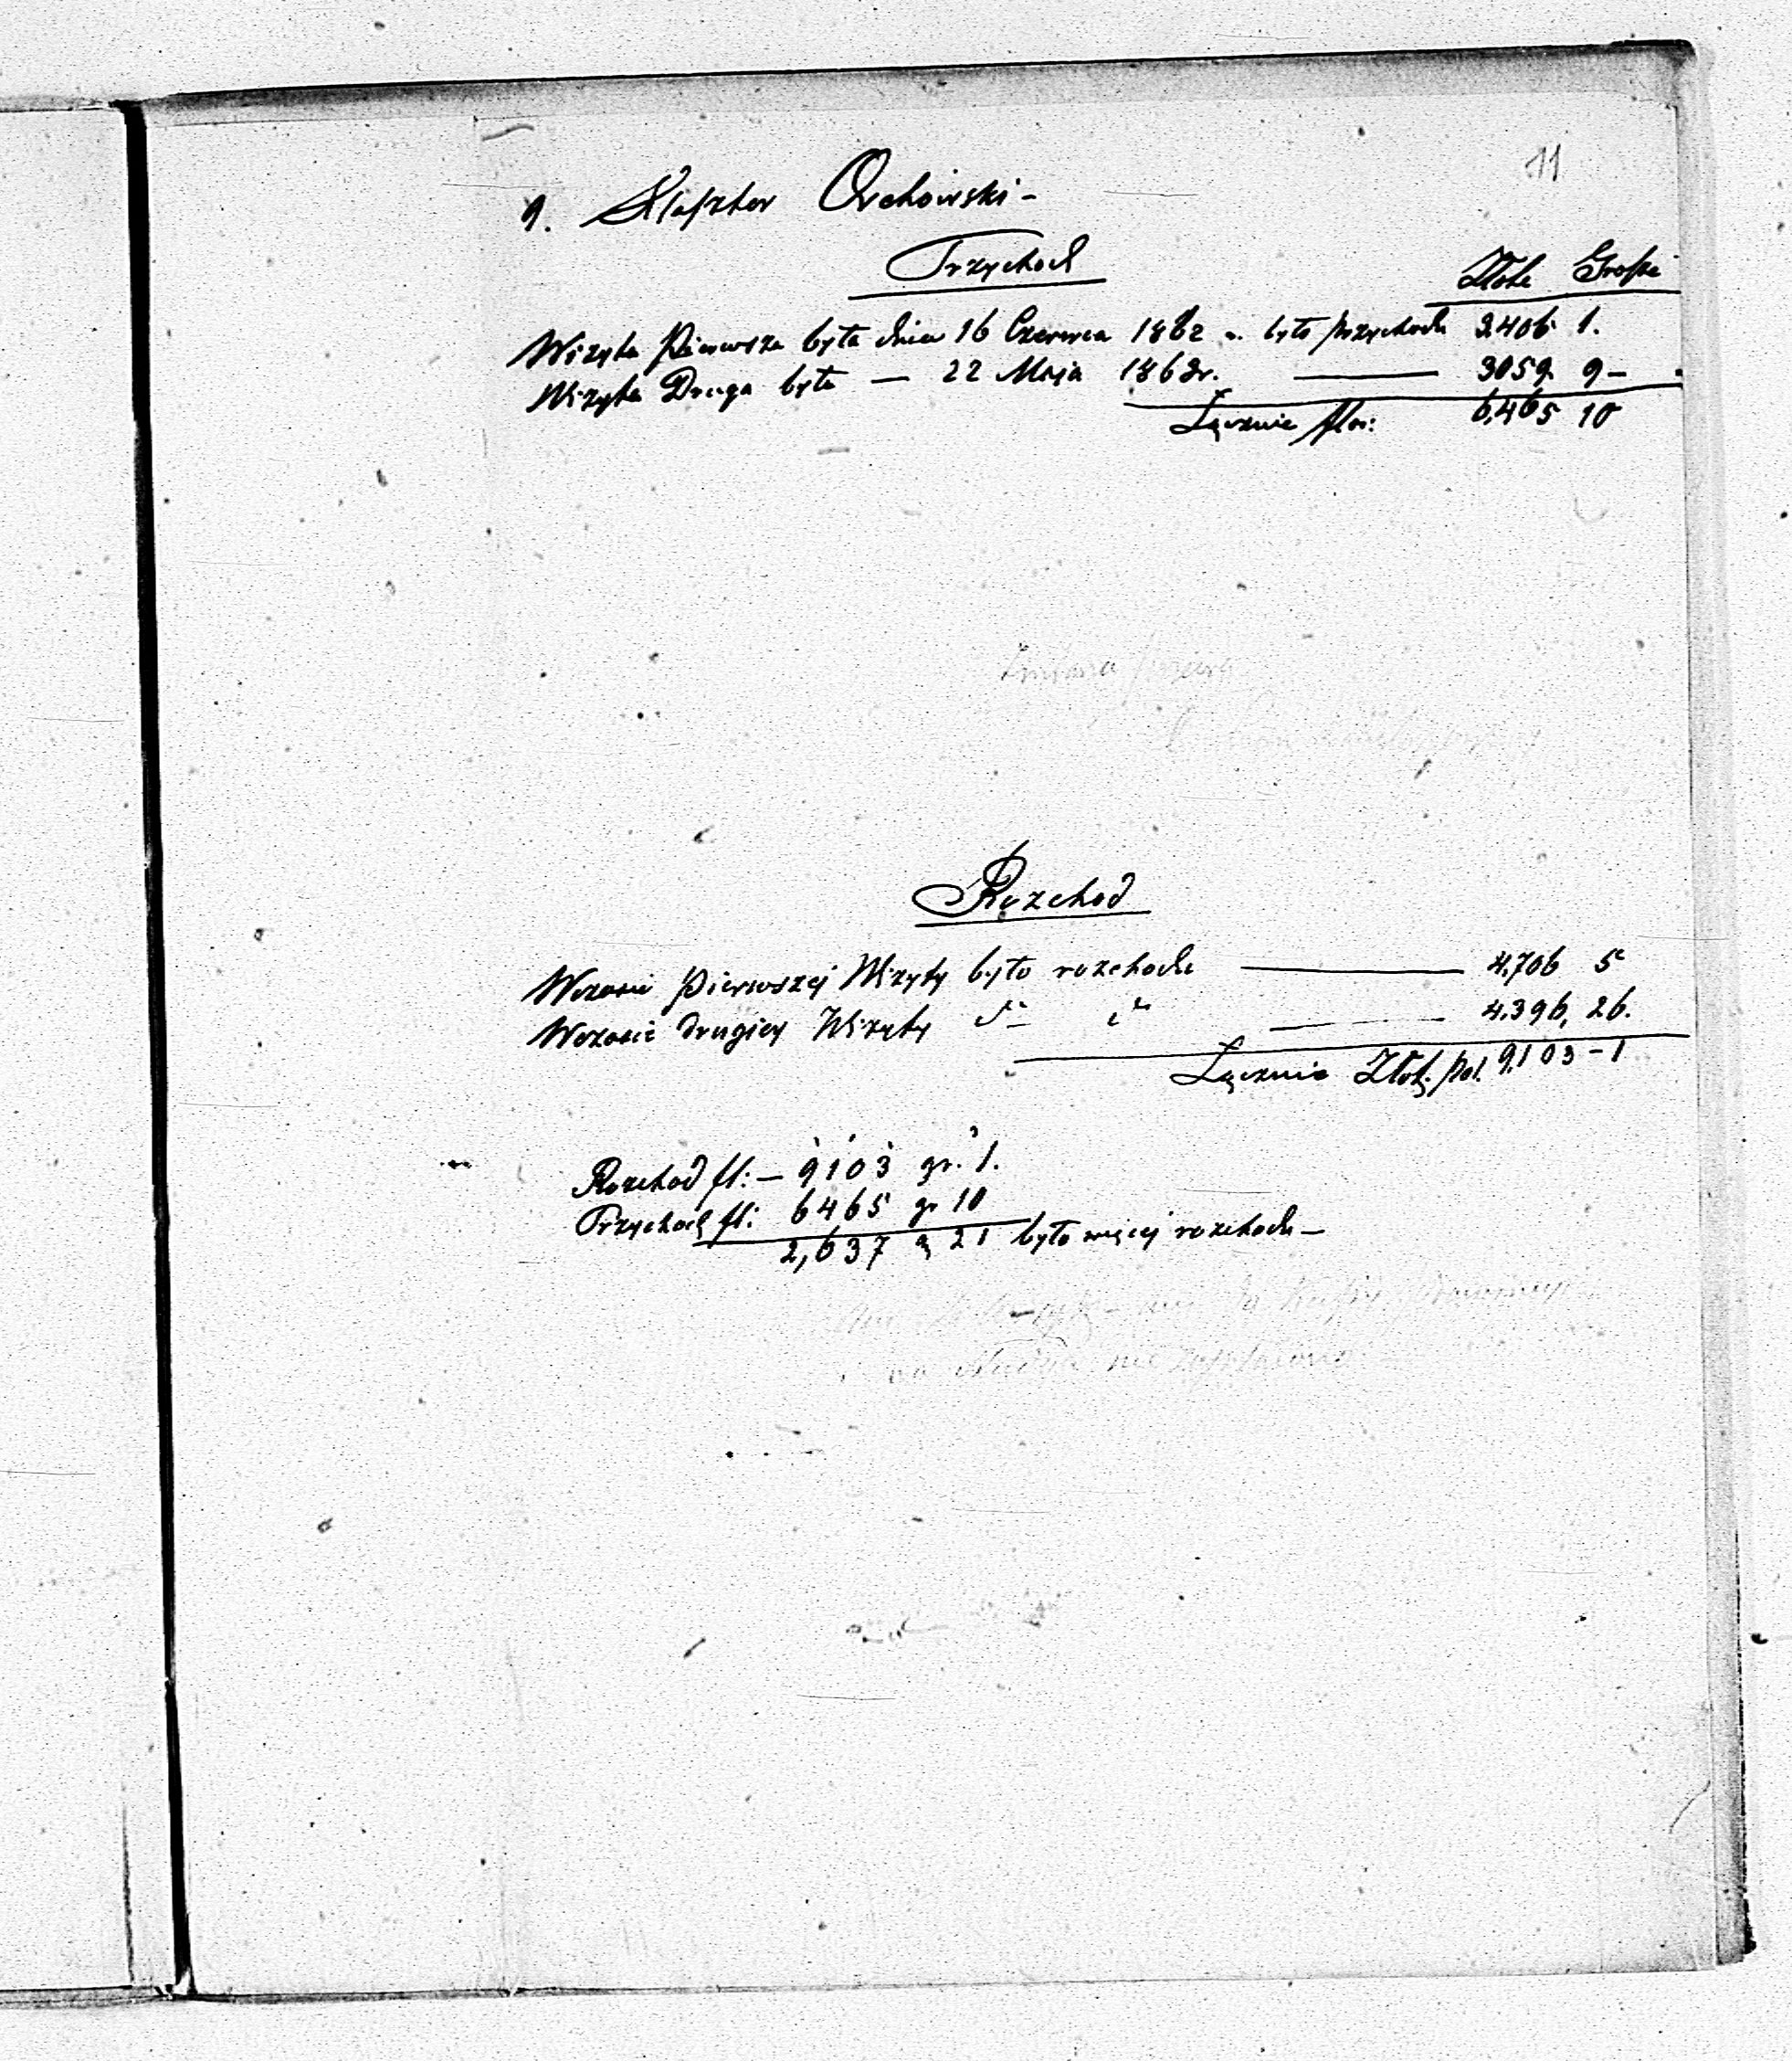 11
9. Klasztor Orchowski –
Przychod
Złote Grosze
Wizyta Pierwsza była dnia 16 Czerwca 1862 r. było przychodu 3.406 1.
Wizyta Druga była — 22 Maja 1863r. — 3059. 9 –
Łącznie flor: 6,465 10
Rozchod
Wczasie Pierwszej Wizyty było rozchodu — 4,706 5
Wczasie drugiey Wizyty — 4.396, 26.
Łącznie Złot. pol. 9,103 – 1
Rozchod fl: – 9103 gr. 1.
Przychod fl: 6465 gr 10
2,637 g 21 było więcej rozchodu –